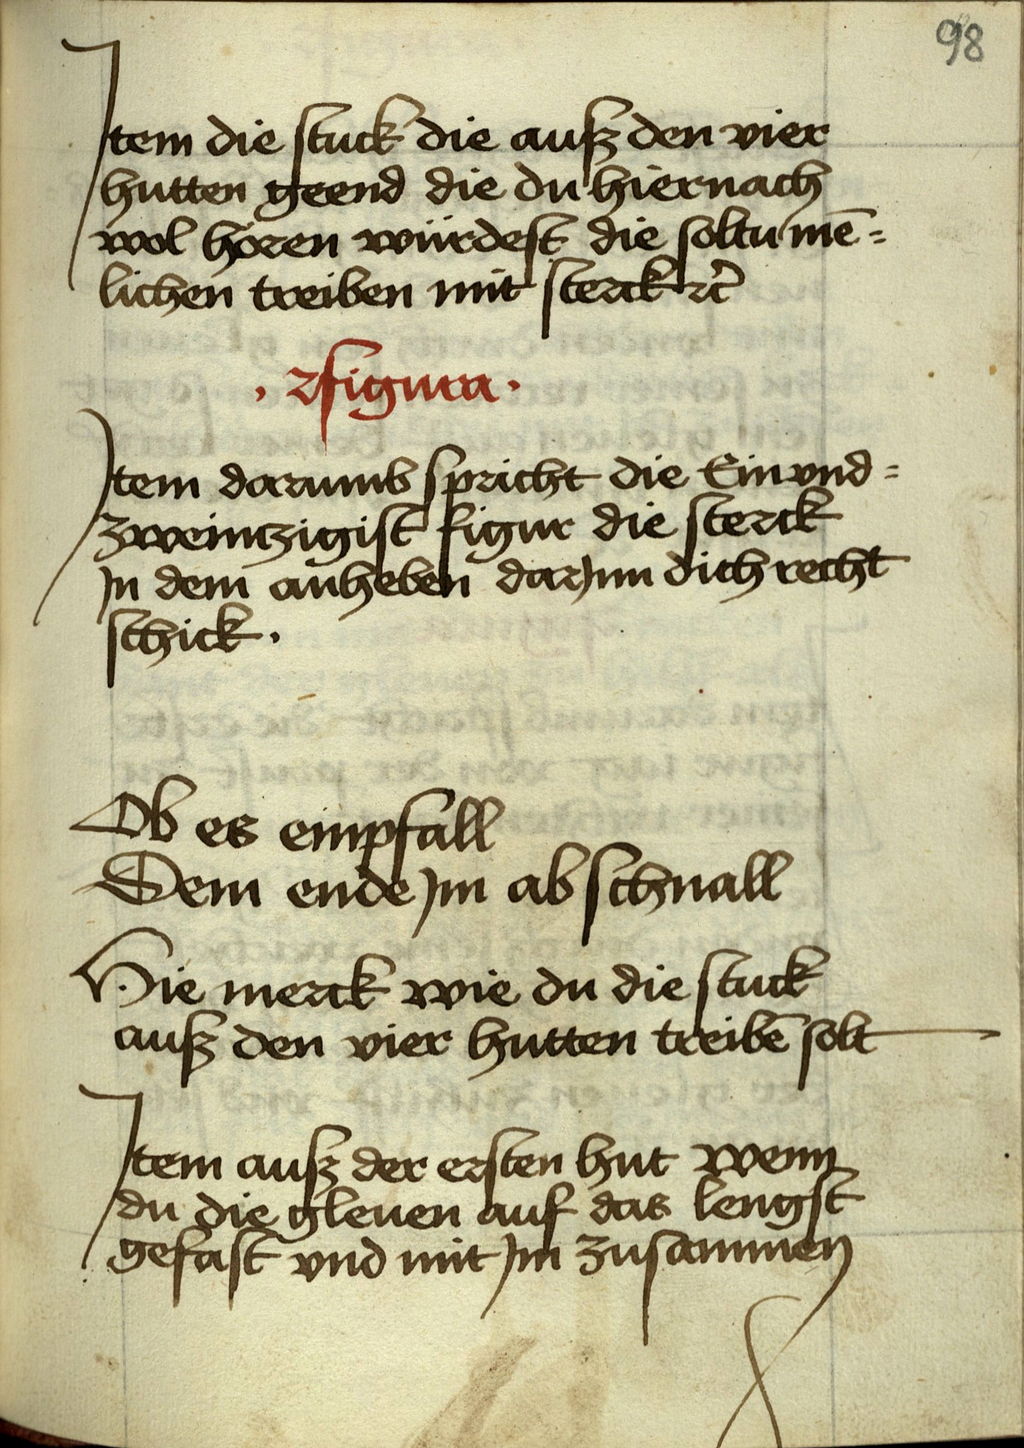 98
Item die stuck die ausz den vier
hutten geend die du hiernach
wol hören würdest die soltu mē=
lichen treiben mit sterck rc̄
· figura ·
Item darumb spricht die Ein vnd=
zweintzigist figur die sterck
Jn dem anheben dar Jnn dich recht
schick ·
Ob es empfall
Dem ende Jm abschnall
Hie merck wie du die stuck
ausz den vier hutten treibē solt
Item ausz der ersten hut wenn
du die gleuen auf das lengst
gefast vnd mit Jm zusammen